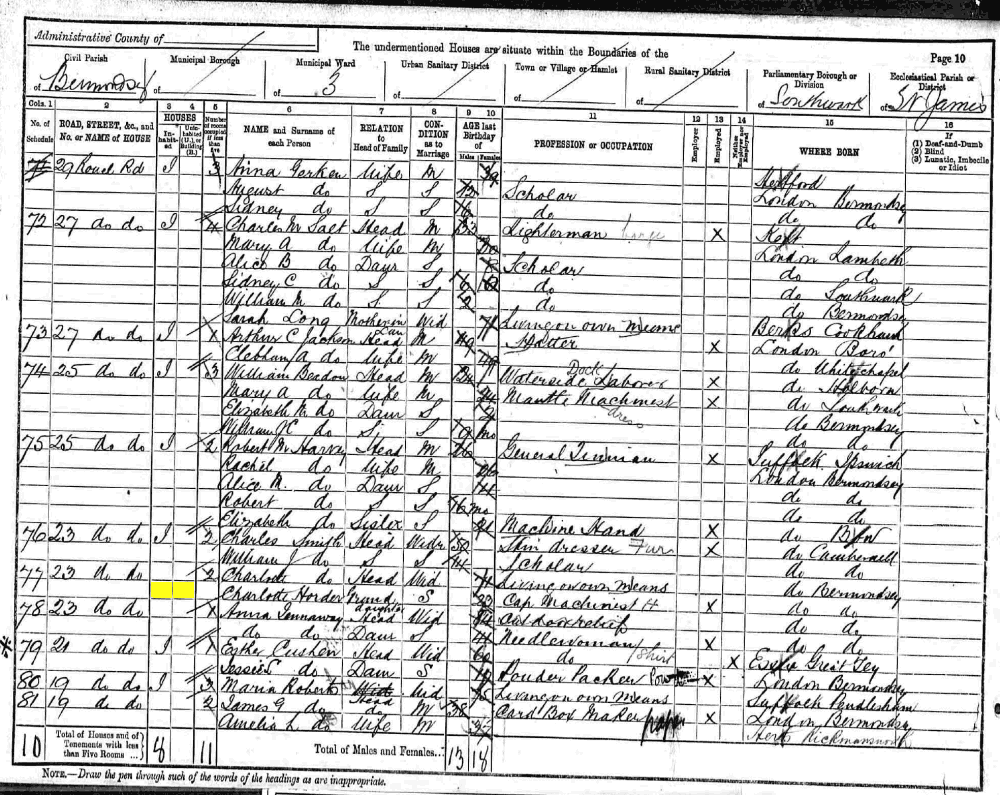 Administrative County of
The undermentioned Houses are situate within the Boundaries of the
Page 10
Civil Parish of Bermondsey
Municipal Borough of
Municipal Ward of 3
Urban Sanitary District of
Town or Village or Hamlet of
Rural Sanitary District of
Parliamentary Borough or Division of Southwark
Ecclesiastical Parish or District of St James
Cols. 1 2 3 4 5 6 7 8 9 10 11 12 13 14 15 16
No. of Schedule
ROAD, STREET, &c., and No. or NAME of HOUSE
HOUSES
Inhabited
Uninhabited (U.) or Building (B.)
Number of rooms occupied if less than five
NAME and Surname of each Person
RELATION to Head of Family
CONDITION as to Marriage
AGE last Birthday of
Males Females
PROFESSION or OCCUPATION
Employer
Employed
Neither Employer nor Employed
WHERE BORN
If (1) Deaf-and-Dumb (2) Blind (3) Lunatic, Imbecile or Idiot
29 Rouel Rd 1 3 Anna Gerken Wife M 39
August do S S Scholar London Bermondsey
Sidney do S S do do do
72 27 do do 1 4 Charles M Salt Head M 33 Lighterman X
Mary A do Wife M London Lambeth
Alice B do Daur S Scholar do do
Sidney C do S S do do Southwark
William M do S S do do Bermondsey
Sarah Long Mother in Law Wid 71 Living on own Means Berks Cookham
73 27 do do 1 Arthur C Jackson Head M 49 Hatter X London Boro'
do Wife M do Whitechapel
74 25 do do 1 3 William Beadow Head M Waterside Dock Laborer X do Holborn
Mary A do Wife M 24 Mantle Machinest dress X do Southwark
Elizabeth M do Daur S 2 do Bermondsey
do S S 9 mo do do
75 25 do do 1 2 Robert M Harvey Head M 26 General X Suffolk Ipswich
Rachel do Wife M London Bermondsey
Alice M. do Daur S do do
Robert do S S mo do do
Elizabeth do Sister S Machine Hand X do
76 23 do do 1 2 Charles Smith Head Widr 50 Skin dresser Fur X do Camberwell
William J do S S 14 Scholar do do
77 23 do do 2 Charlotte do Head Wid 71 Living on own means do Bermondsey
Charlotte Horder Grand daughter S 22 Cap Machinest H X do do
78 23 do do Anna Head Wid do do
do do Daur S Needlewoman X do do
79 21 do do 1 Esther Cushen Head Wid do Shirt X Essex Great
Jessie S do Daur S Powder Packer X London Bermondsey
80 19 do do 1 3 Maria Roberts Head Wid Living on own Means Suffolk
81 19 do do 2 James G do do M 38 Card Box Maker paper X London Bermondsey
Amelia L do Wife M Herts Rickmansworth
10 Total of Houses and of Tenements with less than Five Rooms ... 8 11 Total of Males and Females... 13 18
NOTE.—Draw the pen through such of the words of the headings as are inappropriate.